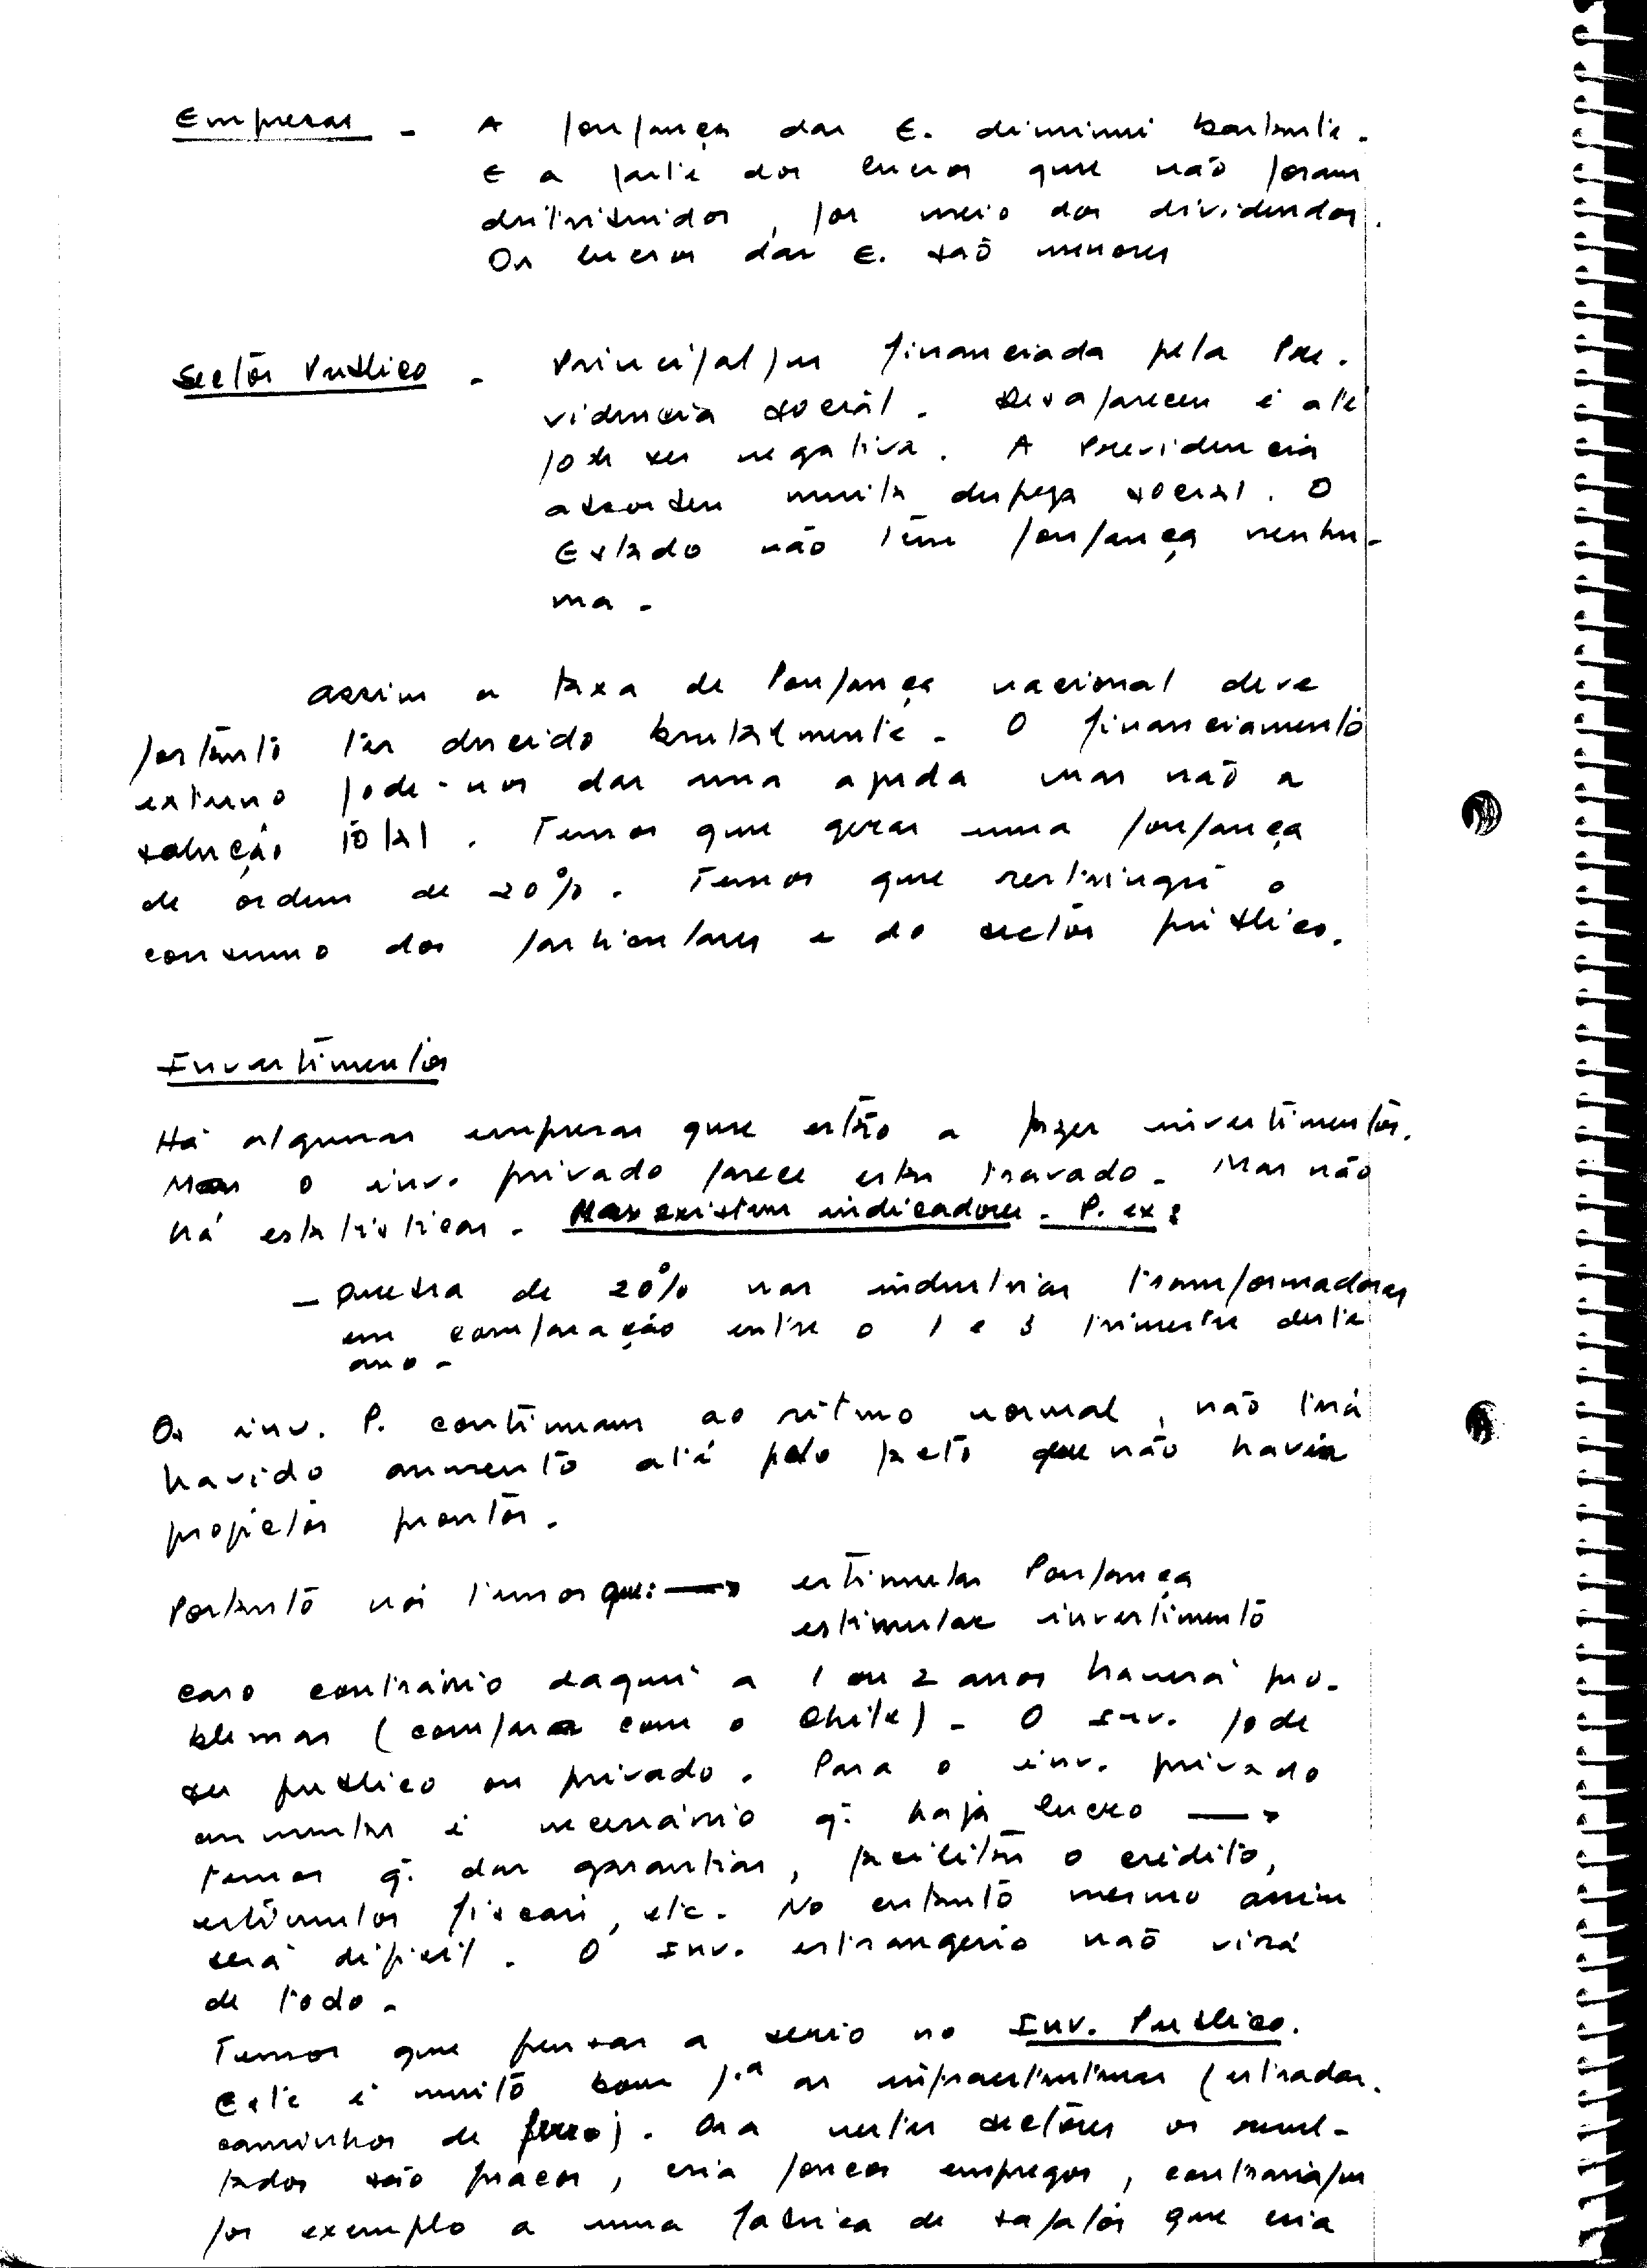 Empresas - A poupança das E. diminui bastante.
E a parte dos lucros que não foram
distribuidos, por meio dos dividendos.
Os lucros das E. são menores
Sector Publico - Principal/m financiada pela Pre-
videncia social. Desapareceu e até
pode ser negativa. A Previdencia
absorveu muita despeza social. O
Estado não têm poupança nenhu-
ma -
Assim a taxa de Poupança nacional deve
portanto ter descido brutalmente - O financiamento
externo pode-nos dar uma ajuda mas não a
solução total. Temos que gerar uma poupança
de ordem de 20%. Temos que restringir o
consumo dos particulares e do sector publico.
Investimentos
Há algumas empresas que estão a fazer investimentos.
Mas o inv. privado parece estar travado - Mas não
há estatisticas - Mas existem indicadores - P. ex:
- Quebra de 20% nas industrias transformadoras
em comparação entre o 1 e 3 trimestre deste
ano -
Os inv. P. continuam ao ritmo normal, não terá
havido aumento até pelo facto que não havia
projetos prontos.
Portanto nós temos que: → estimular Poupança
estimular investimento
caso contrário daqui a 1 ou 2 anos haverá pro-
blemas (compara com o Chile) - O Inv. pode
ser publico ou privado. Para o inv. privado
aumentar é necessário q. haja lucro →
temos q. dar garantias, facilitar o crédito,
estimulos fiscais, etc. No entanto mesmo assim
será dificil. O Inv. estrangerio não virá
de todo -
Temos que pensar a serio no Inv. Publico.
Este é muito bom p.ª as infraestruturas (estradas.
caminhos de ferro). Ora nestes sectores os resul-
tados são fracos, cria poucos empregos, contraria/m
por exemplo a uma fabrica de sapatos que cria